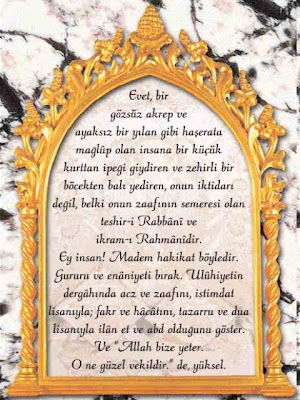 Evet, bir
gözsüz akrep ve
ayaksız bir yılan gibi haşerata
mağlûp olan insana bir küçük
kurttan ipeği giydiren ve zehirli bir
böcekten balı yediren, onun iktidarı
değil, belki onun zaafının semeresi olan
teshir-i Rabbânî ve
ikram-ı Rahmânîdir.
Ey insan! Madem hakikat böyledir.
Gururu ve enâniyeti bırak. Ulûhiyetin
dergâhında acz ve zaafını, istimdat
lisanıyla; fakr ve hâcâtını, tazarru ve dua
lisanıyla ilân et ve abd olduğunu göster.
Ve "Allah bize yeter.
O ne güzel vekildir." de, yüksel.